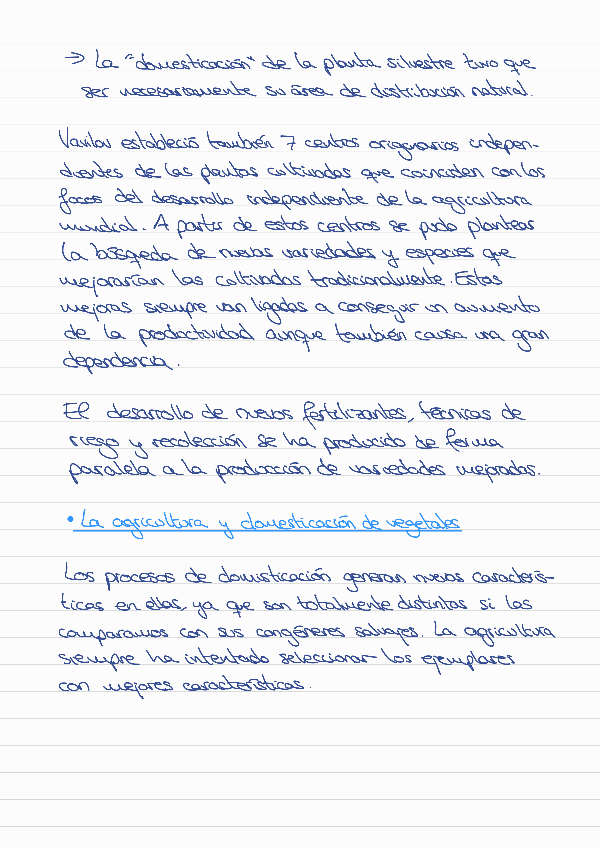 → La "domesticación" de la planta silvestre tuvo que
ser necesariamente su área de distribución natural.
Vavilov estableció también 7 centros originarios indepen-
dientes de las plantas cultivadas que coinciden con los
focos del desarrollo independiente de la agricultura
mundial. A partir de estos centros se pudo plantear
la búsqueda de nuevas variedades y especies que
mejorarían las cultivadas tradicionalmente. Estas
mejoras siempre van ligadas a conseguir un aumento
de la productividad aunque también causa una gran
dependencia.
El desarrollo de nuevos fertilizantes, técnicas de
riego y recolección se ha producido de forma
paralela a la producción de variedades mejoradas.
• La agricultura y domesticación de vegetales
Los procesos de domesticación generan nuevas caracterís-
ticas en ellas, ya que son totalmente distintas si las
comparamos con sus congéneres salvajes. La agricultura
siempre ha intentado seleccionar los ejemplares
con mejores características.